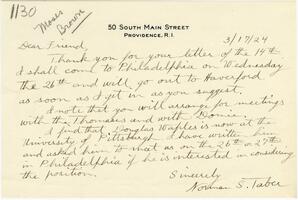 1130
Moses
Brown
50 SOUTH MAIN STREET
PROVIDENCE, R.I.
3/17/24
Dear Friend,
Thank you for your letter of the 14th
I shall come to Philadelphia on Wednesday
the 26th and will go out to Haverford
as soon as I get in as you suggest.
I note that you will arrange for meetings
with the Thomases and with Domie.
I find that Douglas Waples is now at the
University of Pittsburgh. I have written him
and asked him to meet us on the 26th or 27th
in Philadelphia if he is interested in considering
the position.
Sincerely
Norman S. Taber